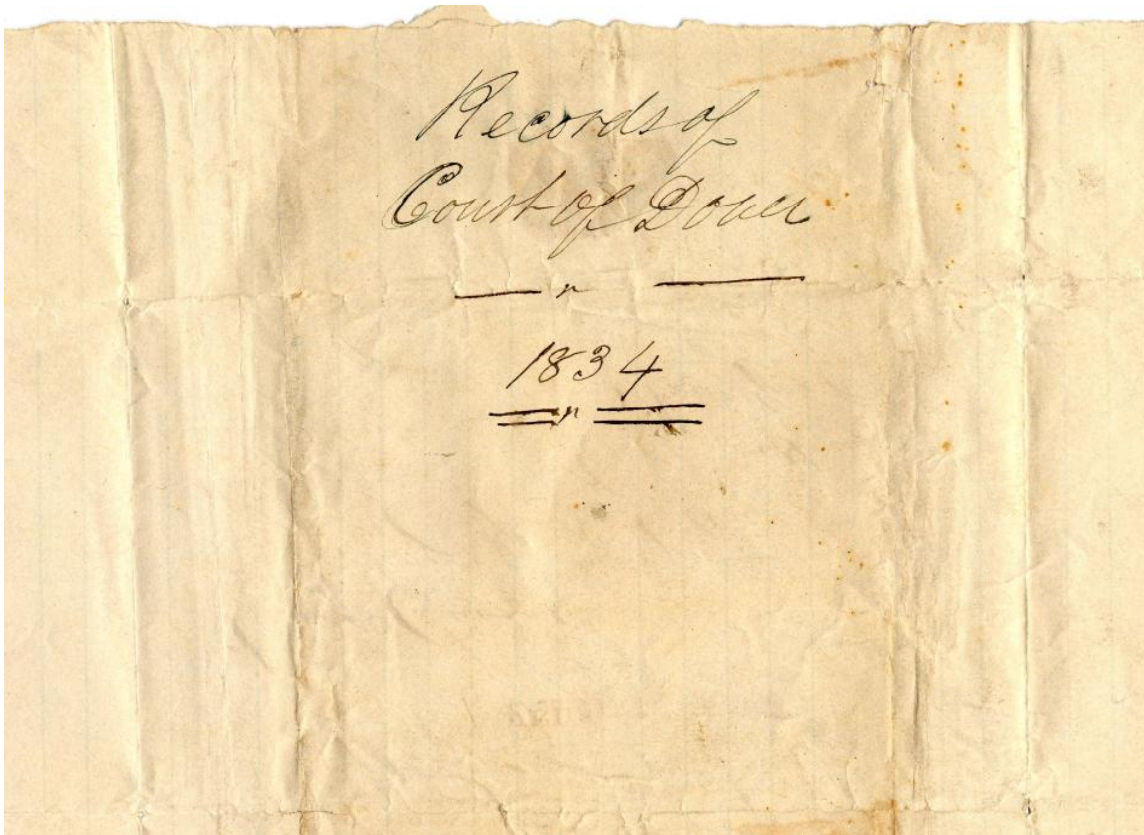 Records of
Court of Dover
1834